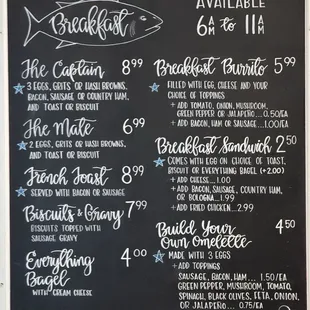 Breakfast
AVAILABLE
6AM to 11AM
The Captain 8.99
3 EGGS, GRITS OR HASH BROWNS,
BACON, SAUSAGE OR COUNTRY HAM,
AND TOAST OR BISCUIT
The Mate 6.99
2 EGGS, GRITS OR HASH BROWNS,
AND TOAST OR BISCUIT
French Toast 8.99
SERVED WITH BACON OR SAUSAGE
Biscuits & Gravy 7.99
BISCUITS TOPPED WITH
SAUSAGE GRAVY
Everything 4.00
Bagel
WITH CREAM CHEESE
Breakfast Burrito 5.99
FILLED WITH EGG, CHEESE AND YOUR
CHOICE OF TOPPINGS
+ ADD TOMATO, ONION, MUSHROOM,
GREEN PEPPER OR JALAPEÑO... 0.50/EA
+ ADD BACON, HAM OR SAUSAGE... 1.00/EA
Breakfast Sandwich 2.50
COMES WITH EGG ON CHOICE OF TOAST,
BISCUIT OR EVERYTHING BAGEL (+2.00)
+ ADD CHEESE... 1.00
+ ADD BACON, SAUSAGE, COUNTRY HAM,
OR BOLOGNA... 1.99
+ ADD FRIED CHICKEN... 2.99
Build Your 4.50
Own Omelette
MADE WITH 3 EGGS
+ ADD TOPPINGS
SAUSAGE, BACON, HAM... 1.50/EA
GREEN PEPPER, MUSHROOM, TOMATO,
SPINACH, BLACK OLIVES, FETA, ONION,
OR JALAPEÑO... 0.75/EA